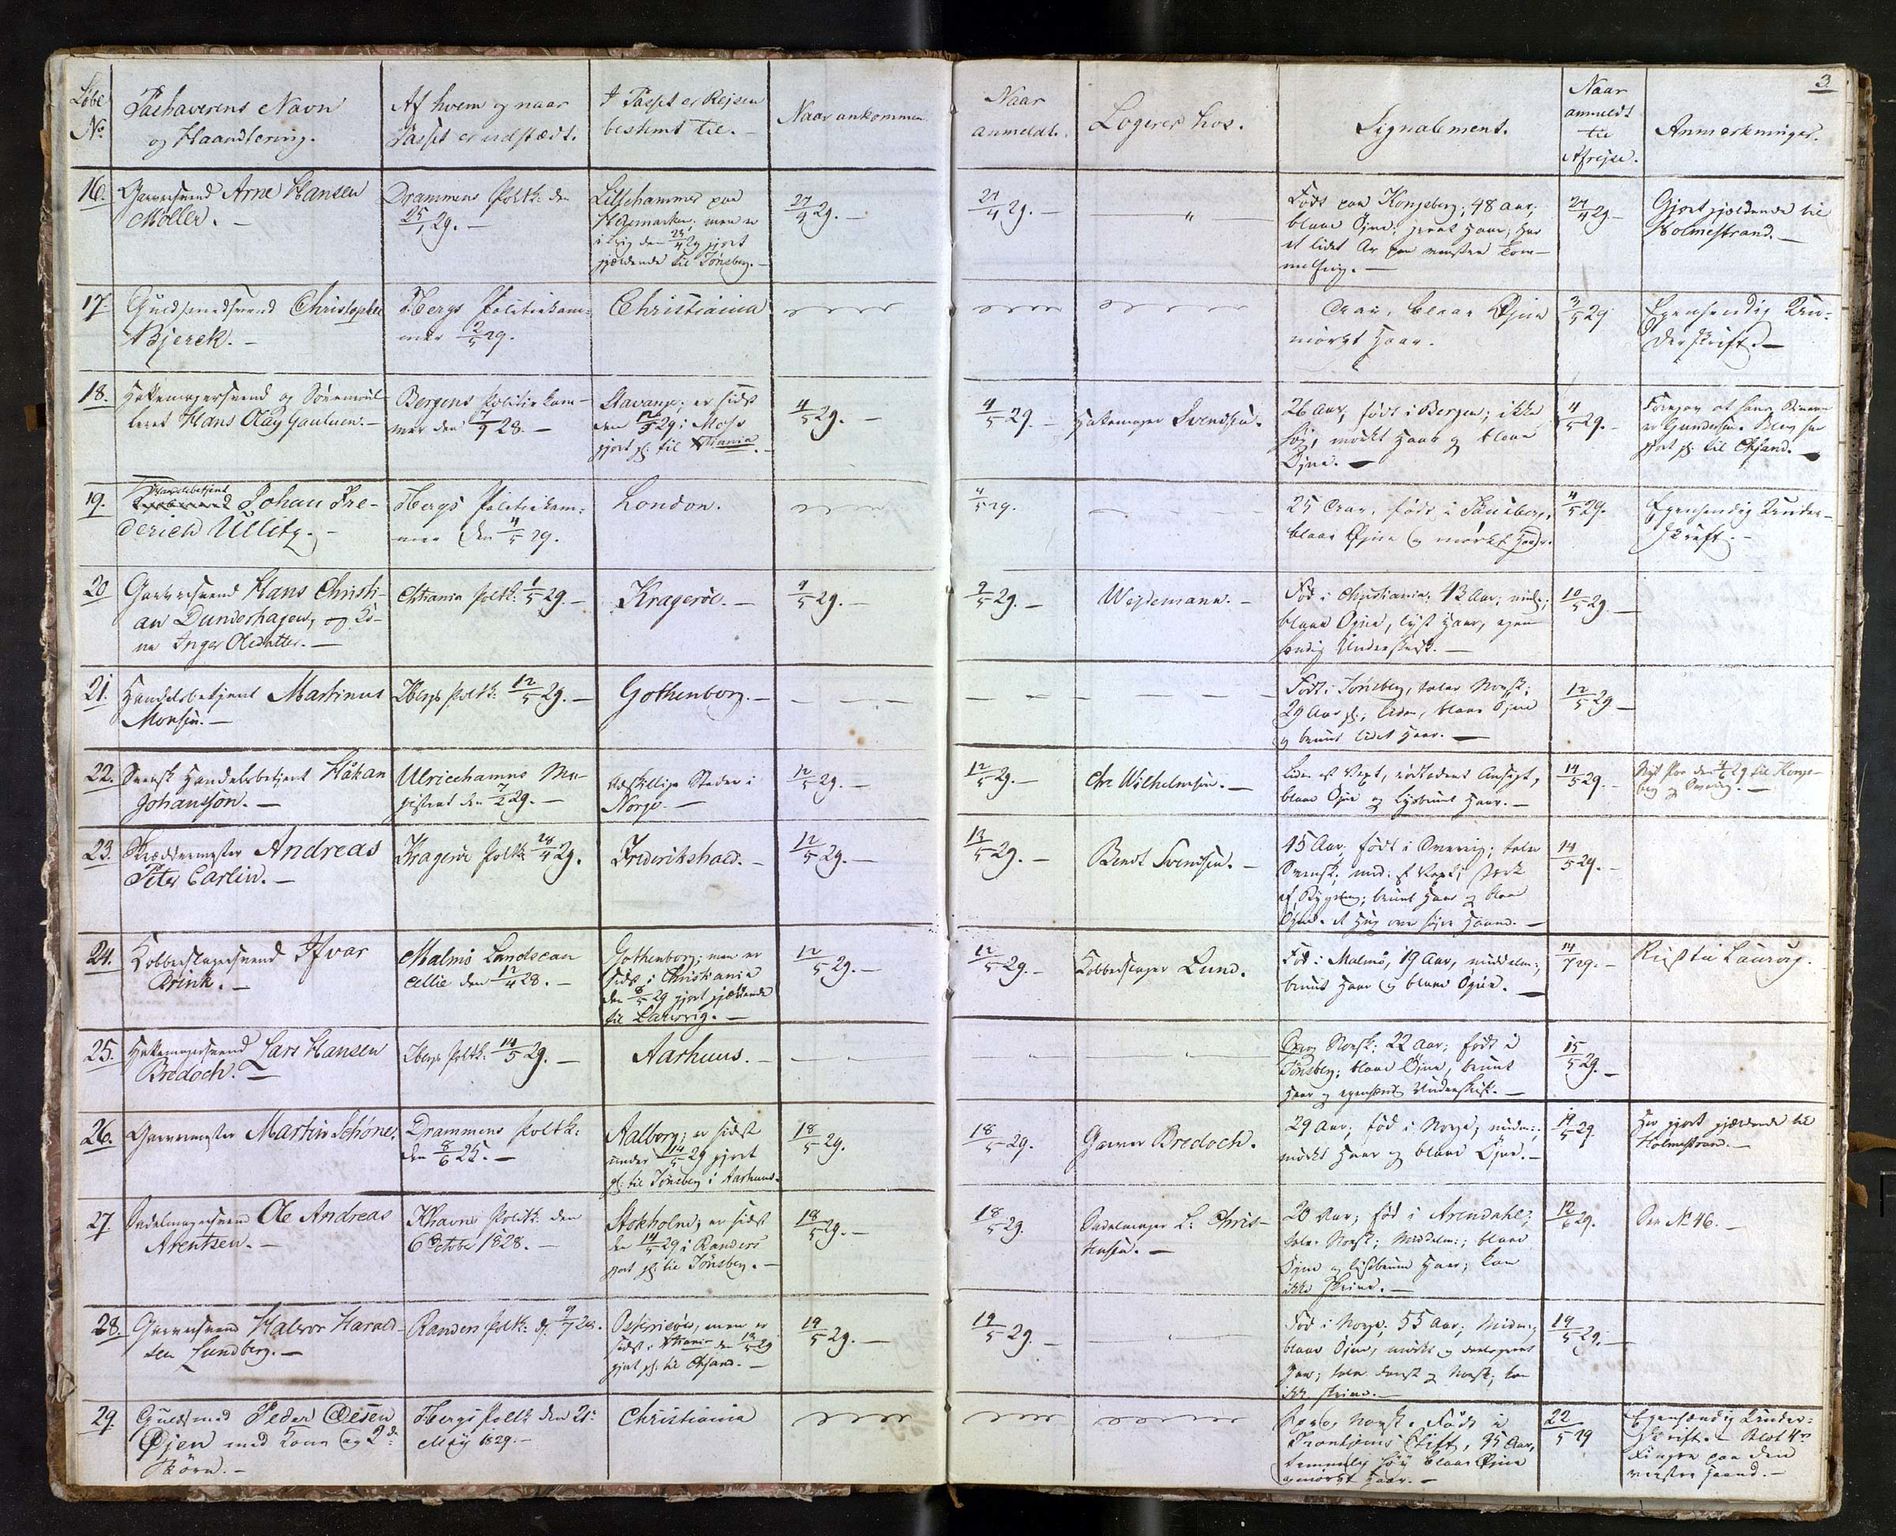 3.
Løbe No.
Pashaverens Navn
og Haandtering.
Af hvem og naar
Passet er udstædt.
I Passet er Rejsen
bestemt til.
Naar ankommen
Naar
anmeldt.
Logerer hos.
Signalement.
Naar
anmeldt
til
Afrejse.
Anmerkninger.
16.
Garversvend Arne Hansen
Møller.
Drammens Poltk: den
25/1 29.
Lillehammer paa
Hedemarken; men er
gjældende til Tønsberg.
27/4 29.
27/4 29.
"
Født paa Kongsberg; 48 Aar,
blaae Øjne, Haar; har
et lidet Ar paa venstre
27/4 29
Gjort gjældende til
Holmestrand.
17.
Guldsmedsvend Christopher
Bjerck.
Tbergs Politiekam-
mer 2/5 29.
Christiania
Aar, blaae Øjne
mørkt Haar.
3/5 29
Egenhændig Un-
derskrift.
18.
Hattemagersvend og
Hans Olay Paulsen.
Bergens Politiekam-
mer den 7/9 28.
Stavanger; er sidst
i Moss
gjort gj: til Xtiania.
4/5 29.
4/5 29.
Hattemager Svendsen.
26 Aar, født i Bergen; ikke
høj, mørkt Haar og blaae
Øjne.
4/5 29.
gjort gj: til Chsand.
19.
Handelsbetjent
Johan Fre-
derich Ullitz.
Tbergs Politiekam-
mer den 4/5 29.
London.
4/5 29.
25 Aar, født i Tønsberg,
blaae Øjne og mørkt Haar.
4/5 29.
Egenhændig Under-
skrift.
20
Garversvend Hans Christi-
an Dunderhagen, og Ko-
ne Inger Olesdatter.
Chtiania Poltk: 1/5 29.
Kragerøe.
9/5 29.
9/5 29.
Wejdemann.
Fød i Christiania; 43 Aar; midd:;
blaae Øjne, lyst Haar, egen
hændig Underskrift.
10/5 29.
21.
Handelsbetjent Martinus
Monsen.
Tbergs Poltk: 12/5 29.
Gothenborg.
Født i Tønsberg, taler Norsk;
29 Aar gl:, liden, blaae Øjne
og bruunt lidet Haar.
12/5 29
22.
Svensk Handelsbetjent Håkan
Johansson.
Ulricehamns Ma-
gistrat den 7/2 29.
Adskillige Steder i
Norge.
12/5 29.
12/5 29.
Chr Wilhelmsen.
Liden af Vext, Ansigt,
blaae Øjne og lysbruunt Haar.
14/5 29.
23.
Skræddermester Andreas
Peter Carlin.
Kragerøe Poltk 28/4 29.
Frederikshald.
12/5 29.
13/5 29.
Bendt Svendsen.
45 Aar, født i Sverrig; taler
Svensk, mid: af Vext; stærk
af Bygning; bruunt Haar og blaae
Øjne.
14/5 29.
24.
Kobberslagersvend Ifvar
Brink.
Malmö Landscan
cellie den 12/4 28.
Gothenborg; men er
sidst i Christiania
den 8/5 29 gjort gjældende
til Laurvig.
12/5 29.
12/5 29.
Kobberslager Lund.
Fød i Malmö, 19 Aar, middelm:;
bruunt Haar og blaae Øjne.
14/7 29.
Rejst til Laurvig.
25.
Hattemagersvend Lars Hansen
Bredoch.
Tbergs Poltk: 14/5 29.
Aarhuus.
Norsk; 22 Aar; født i
Tønsberg; blaae Øjne, bruunt
Haar og egenhændi Underskrift.
15/5 29.
26.
Garvermester Martin Schøne.
Drammens Poltk:
den 8/6 25.
Aalborg; er sidst
under 14/5 29 gjort
gj: til Tønsberg i Aarhuus.
18/5 29.
18/5 29.
Garver Bredoch.
29 Aar; fød i Norge, midd:,
mørkt Haar og blaae Øjne.
19/5 29.
Her gjort gjældende til
Holmestrand.
27
Sadelmagersvend Ole Andreas
Arentsen.
Khavns Poltk: den
6 Octobr 1828.
Stokholm; er sidst
den 14/5 29 i Randers
gjort gj: til Tønsberg.
18/5 29.
18/5 29.
Sadelmager L: Chris-
tensen.
20 Aar; fød i Arendahl;
taler Norsk; Middelm:; blaae
Øjne og lysbruunt Haar; kan
ikke skrive.
12/6 29.
See No 46.
28.
Garversvend Halvor Harald-
sen Lundberg.
Randers Poltk: d: 9/7 28.
Østerrisøer, men er
sidst i Xtiania den 13/5 29
gjort gj: til Chsand.
19/5 29.
19/5 29.
Fød i Norge, 55 Aar; Midd:
blaae Øjne, mørkt og
Haar; taler dansk og Norsk; kan
ikke skrive.
19/5 29.
29.
Guldsmed Peder Olesen
Øjen med Kone og 2de
Børn.
Tbergs Poltk den 21:
May 1829.
Christiania
Norsk. Født i
Trondhjems Stift, 35 Aar,
temmelig høj blaae Øjne
og mørkt Haar.
22/5 29
Egenhændig Under-
skrift. Blot 4re
Fingre paa den
venstre Haand.